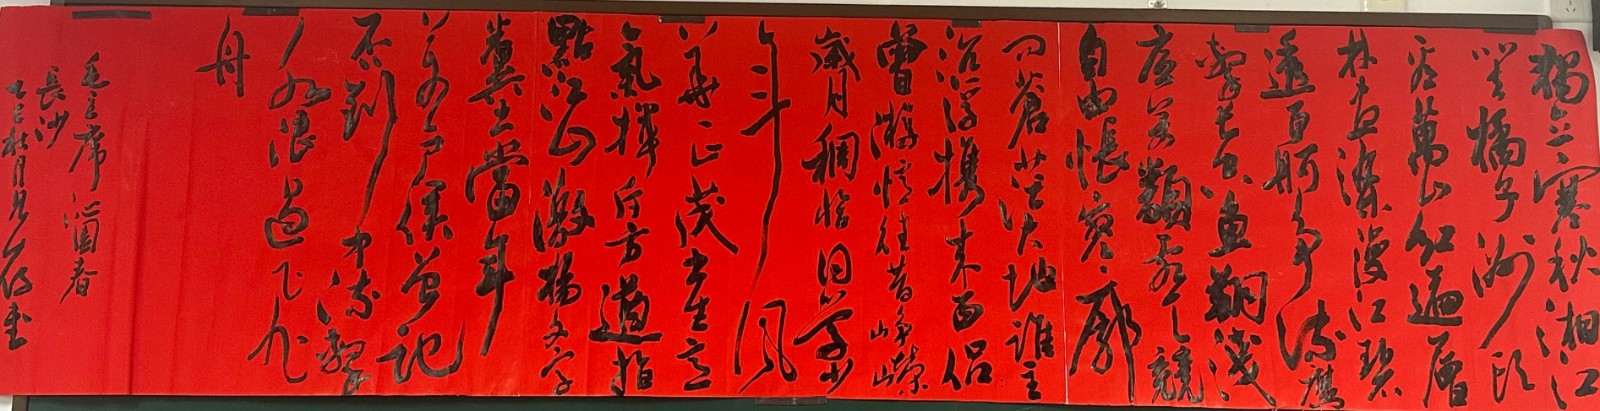 獨立寒秋湘江
北去橘子洲頭
看萬山紅遍層
林盡染漫江碧
透百舸爭流鷹
擊長空魚翔淺
底萬類霜天競
自由悵寥廓
问蒼茫大地誰主
沉浮攜來百侣
曾游憶往昔崢嶸
歲月稠恰同學少
年風
華正茂書生意
氣揮斥方遒指
點江山激揚文字
糞土當年
萬户侯曾記
否到中流擊
水浪遏飞
舟
毛主席沁園春
長沙
乙巳秋月